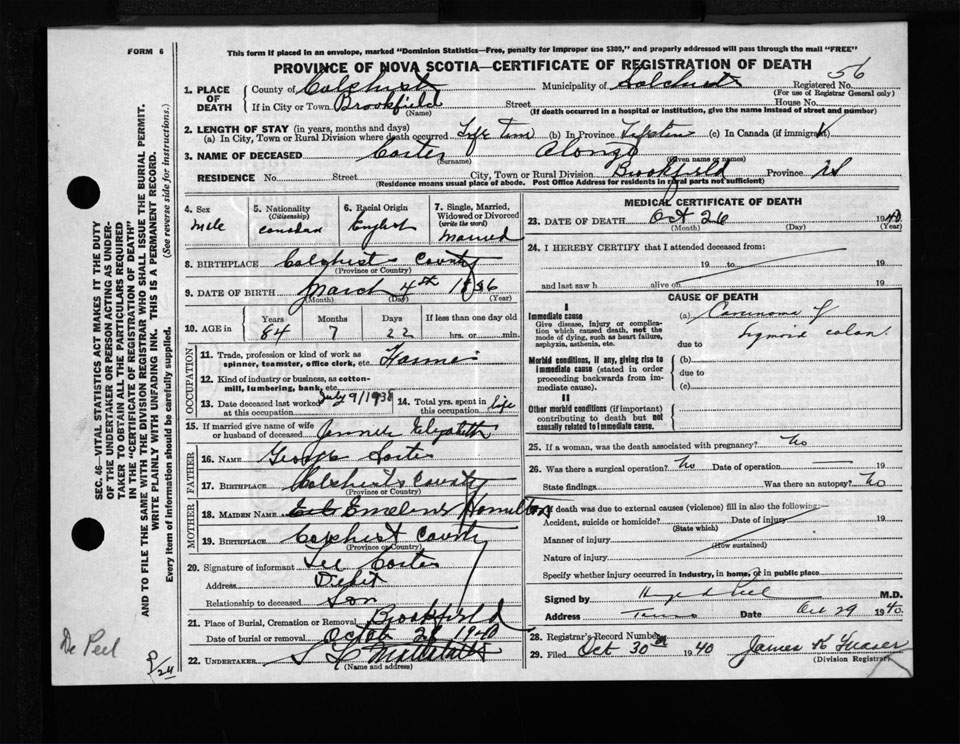 FORM 6
This form if placed in an envelope, marked "Dominion Statistics—Free, penalty for improper use $300," and properly addressed will pass through the mail "FREE"
PROVINCE OF NOVA SCOTIA—CERTIFICATE OF REGISTRATION OF DEATH
56
1. PLACE OF DEATH
County of Colchester Municipality of Colchester Registered No.
(For use of Registrar General only)
If in City or Town Brookfield Street House No.
(Name) (If death occurred in a hospital or institution, give the name instead of street and number)
2. LENGTH OF STAY (in years, months and days)
(a) In City, Town or Rural Division where death occurred Life Time (b) In Province (c) In Canada (if immigrant)
3. NAME OF DECEASED Alonzo
(Surname) (Given name or names)
RESIDENCE No. Street City, Town or Rural Division Brookfield Province NS
(Residence means usual place of abode. Post Office Address for residents in rural parts not sufficient)
4. Sex
Male
5. Nationality
(Citizenship)
6. Racial Origin
English
7. Single, Married, Widowed or Divorced
(write the word)
Married
8. BIRTHPLACE County
(Province or Country)
9. DATE OF BIRTH March 4th
(Month) (Day) (Year)
10. AGE in
Years Months Days If less than one day old
84 7 22 hrs. or min.
OCCUPATION
11. Trade, profession or kind of work as spinner, teamster, office clerk, etc. Farmer
12. Kind of industry or business, as cotton-mill, lumbering, bank, etc.
13. Date deceased last worked at this occupation July 9/1938
14. Total yrs. spent in this occupation life
15. If married give name of wife or husband of deceased Elizabeth
FATHER
16. NAME George
17. BIRTHPLACE County
(Province or Country)
MOTHER
18. MAIDEN NAME Hamilton
19. BIRTHPLACE County
(Province or Country)
20. Signature of informant
Address
Relationship to deceased Son
21. Place of Burial, Cremation or Removal Brookfield
Date of burial or removal 1940
22. UNDERTAKER
(Name and address)
MEDICAL CERTIFICATE OF DEATH
23. DATE OF DEATH Oct 26 1940
(Month) (Day) (Year)
24. I HEREBY CERTIFY that I attended deceased from:
19 to 19
and last saw h alive on 19
CAUSE OF DEATH
I
Immediate cause
Give disease, injury or complication which caused death, not the mode of dying, such as heart failure, asphyxia, asthenia, etc.
(a) Carcinoma of
Sygmoid colon
due to
Morbid conditions, if any, giving rise to immediate cause (stated in order proceeding backwards from immediate cause).
(b)
due to
(c)
II
Other morbid conditions (if important) contributing to death but not causally related to immediate cause.
25. If a woman, was the death associated with pregnancy? No
26. Was there a surgical operation? No Date of operation 19
State findings Was there an autopsy? No
If death was due to external causes (violence) fill in also the following:
Accident, suicide or homicide? Date of injury 19
(State which)
Manner of injury
(How sustained)
Nature of injury
Specify whether injury occurred in industry, in home, or in public place
Signed by M.D.
Address Date Oct 29 1940
28. Registrar's Record Number
29. Filed Oct 30 1940 James K
(Division Registrar)
SEC. 46—VITAL STATISTICS ACT MAKES IT THE DUTY
OF THE UNDERTAKER OR PERSON ACTING AS UNDER-
TAKER TO OBTAIN ALL THE PARTICULARS REQUIRED
IN THE "CERTIFICATE OF REGISTRATION OF DEATH"
AND TO FILE THE SAME WITH THE DIVISION REGISTRAR WHO SHALL ISSUE THE BURIAL PERMIT.
WRITE PLAINLY WITH UNFADING INK. THIS IS A PERMANENT RECORD.
Every item of information should be carefully supplied. (See reverse side for instructions.)
Dr Peel